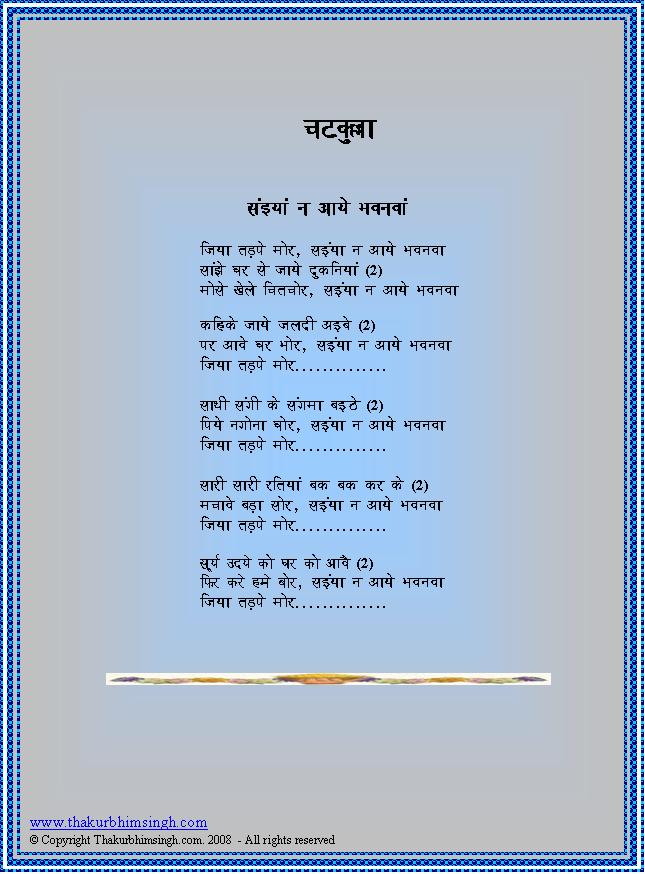 चटकुल्ला
संइयां न आये भवनवां
जिया तड़पे मोर, सइंया न आये भवनवा
सांझे घर से जाये दुकनियां (2)
मोसे खेले चितचोर, सइंया न आये भवनवा
कहिके जाये जलदी अइबे (2)
पर आवे घर भोर, सइंया न आये भवनवा
जिया तड़पे मोर..............
साथी संगी के संगमा बइठे (2)
पिये नगोना घोर, सइंया न आये भवनवा
जिया तड़पे मोर..............
सारी सारी रतियां बक बक कर के (2)
मचावे बड़ा सोर, सइंया न आये भवनवा
जिया तड़पे मोर..............
सूर्य उदये को घर को आवै (2)
फिर करे हमे बोर, सइंया न आये भवनवा
जिया तड़पे मोर..............
www.thakurbhimsingh.com
© Copyright Thakurbhimsingh.com. 2008 - All rights reserved